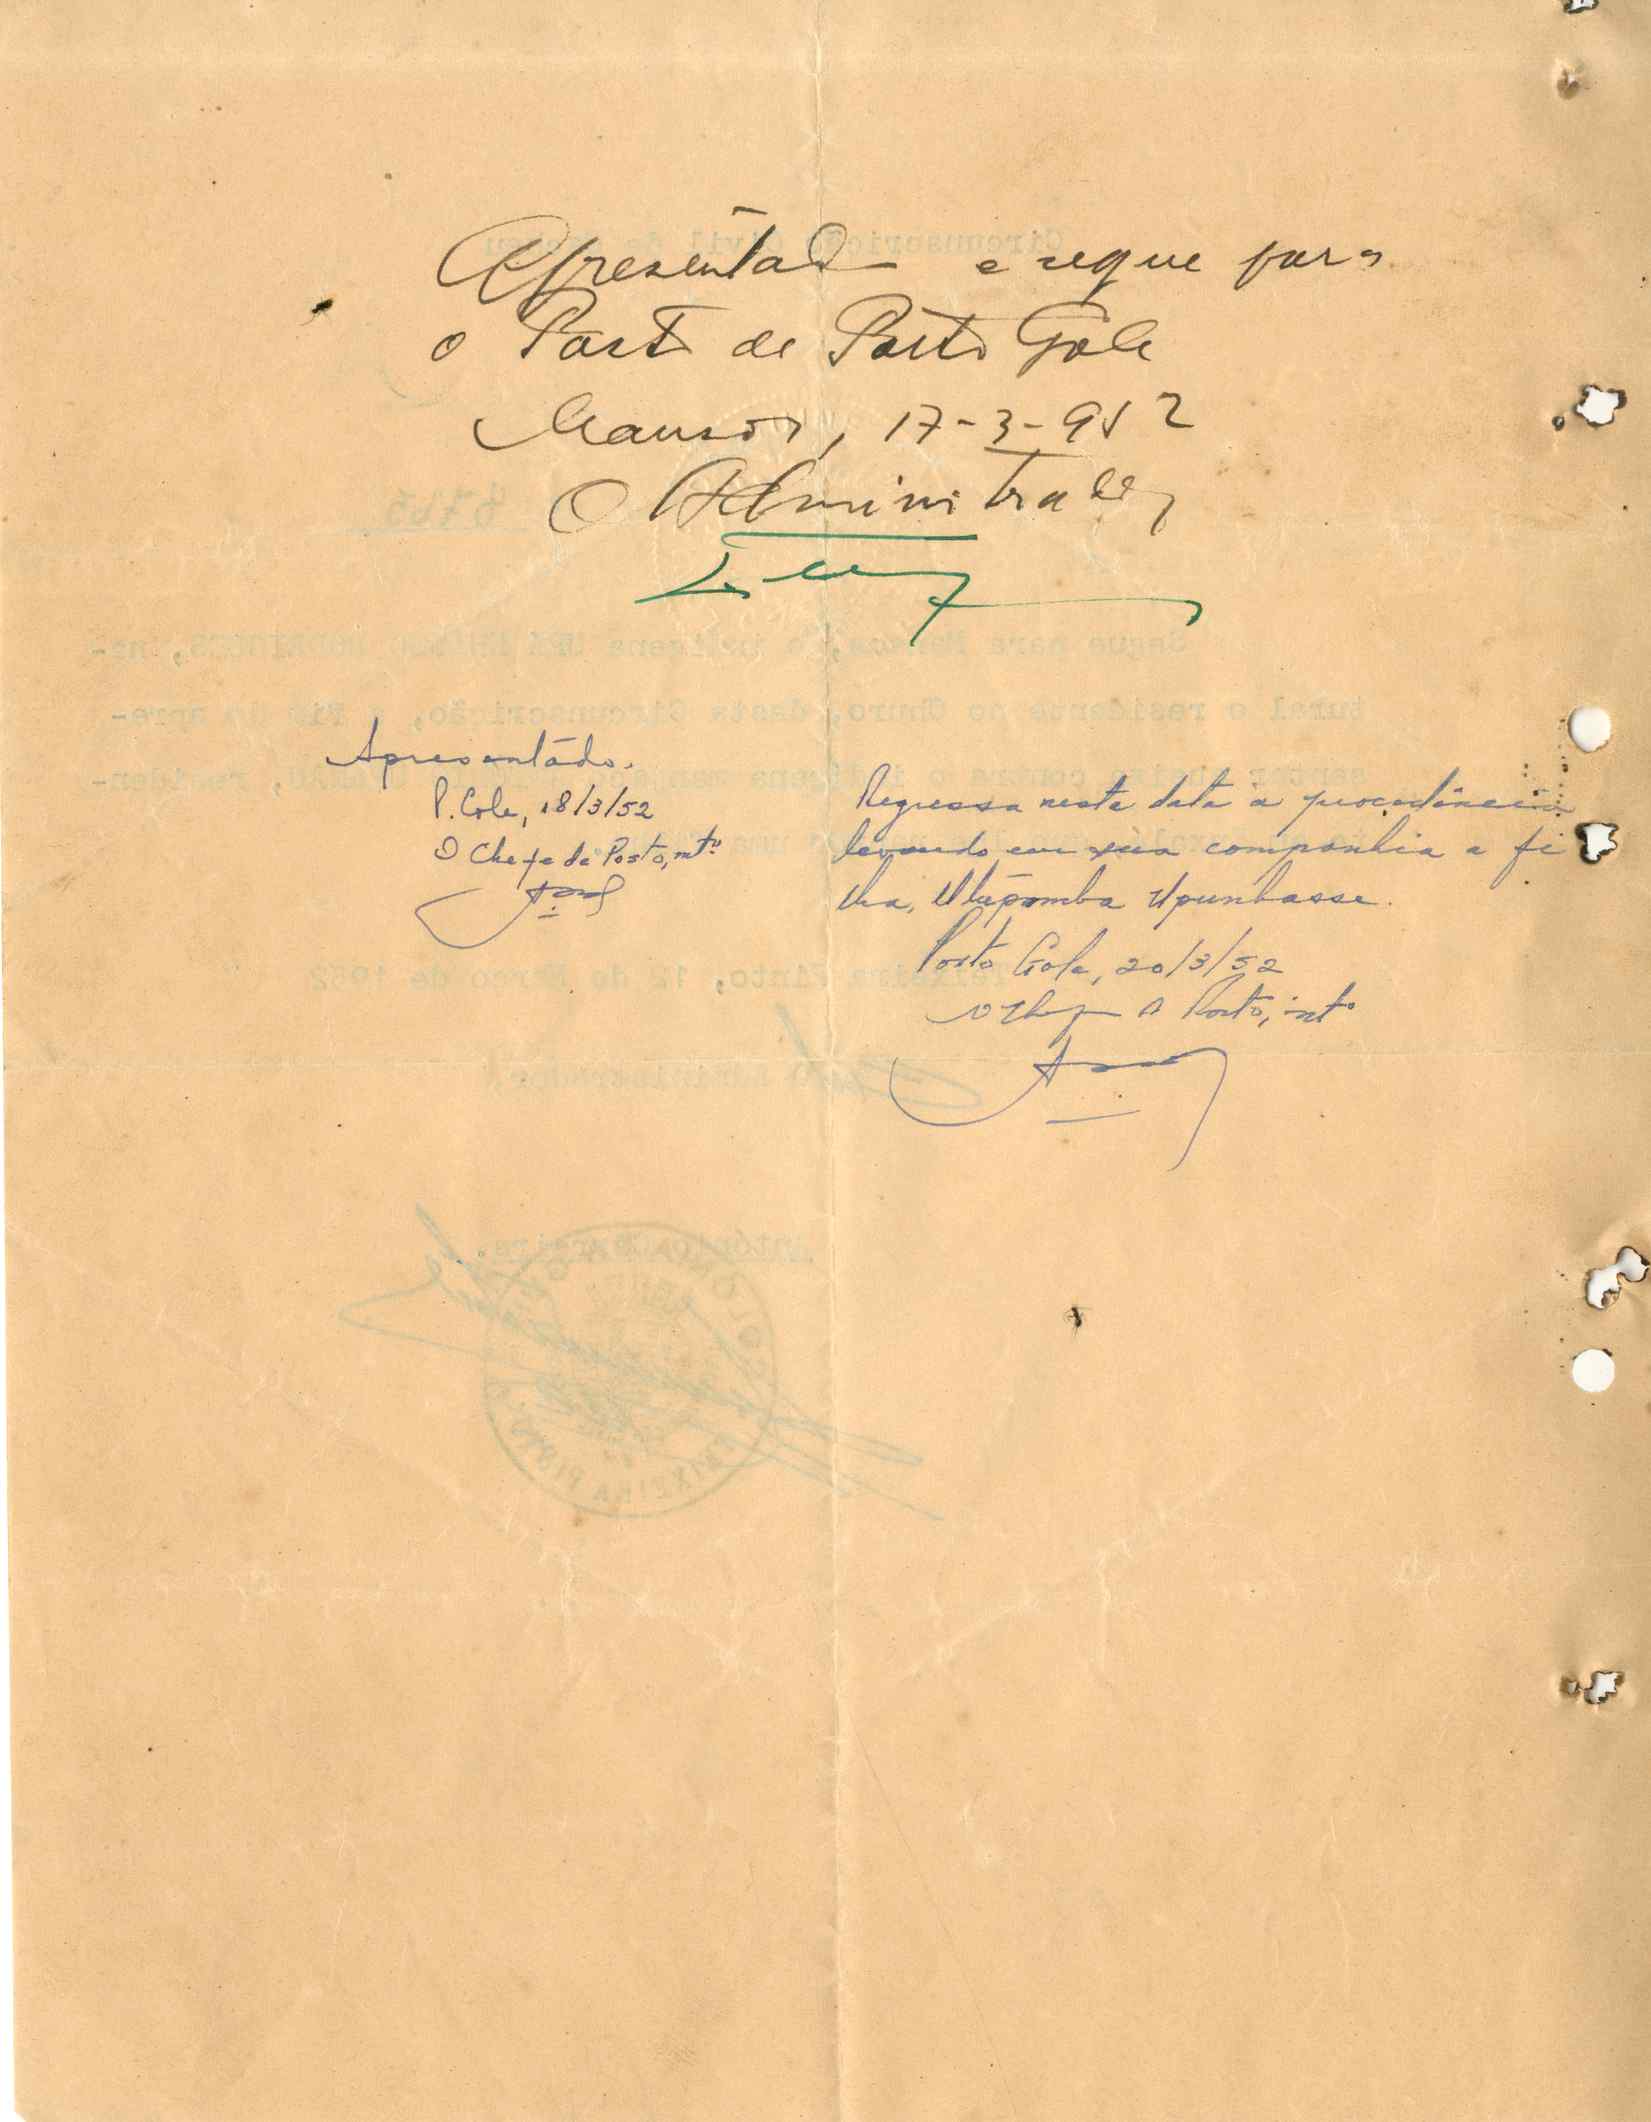 Apresentado e segue para
o Posto de Porto Gole
Mansôa, 17-3-952
O Administrador
Apresentádo.
P. Gole, 18/3/52
O Chefe de Posto, intº
Regressa nesta data à procedência
levando em sua companhia a fi
lha, Upunhasse.
Porto Gole, 20/3/52
O Chefe de Posto, intº